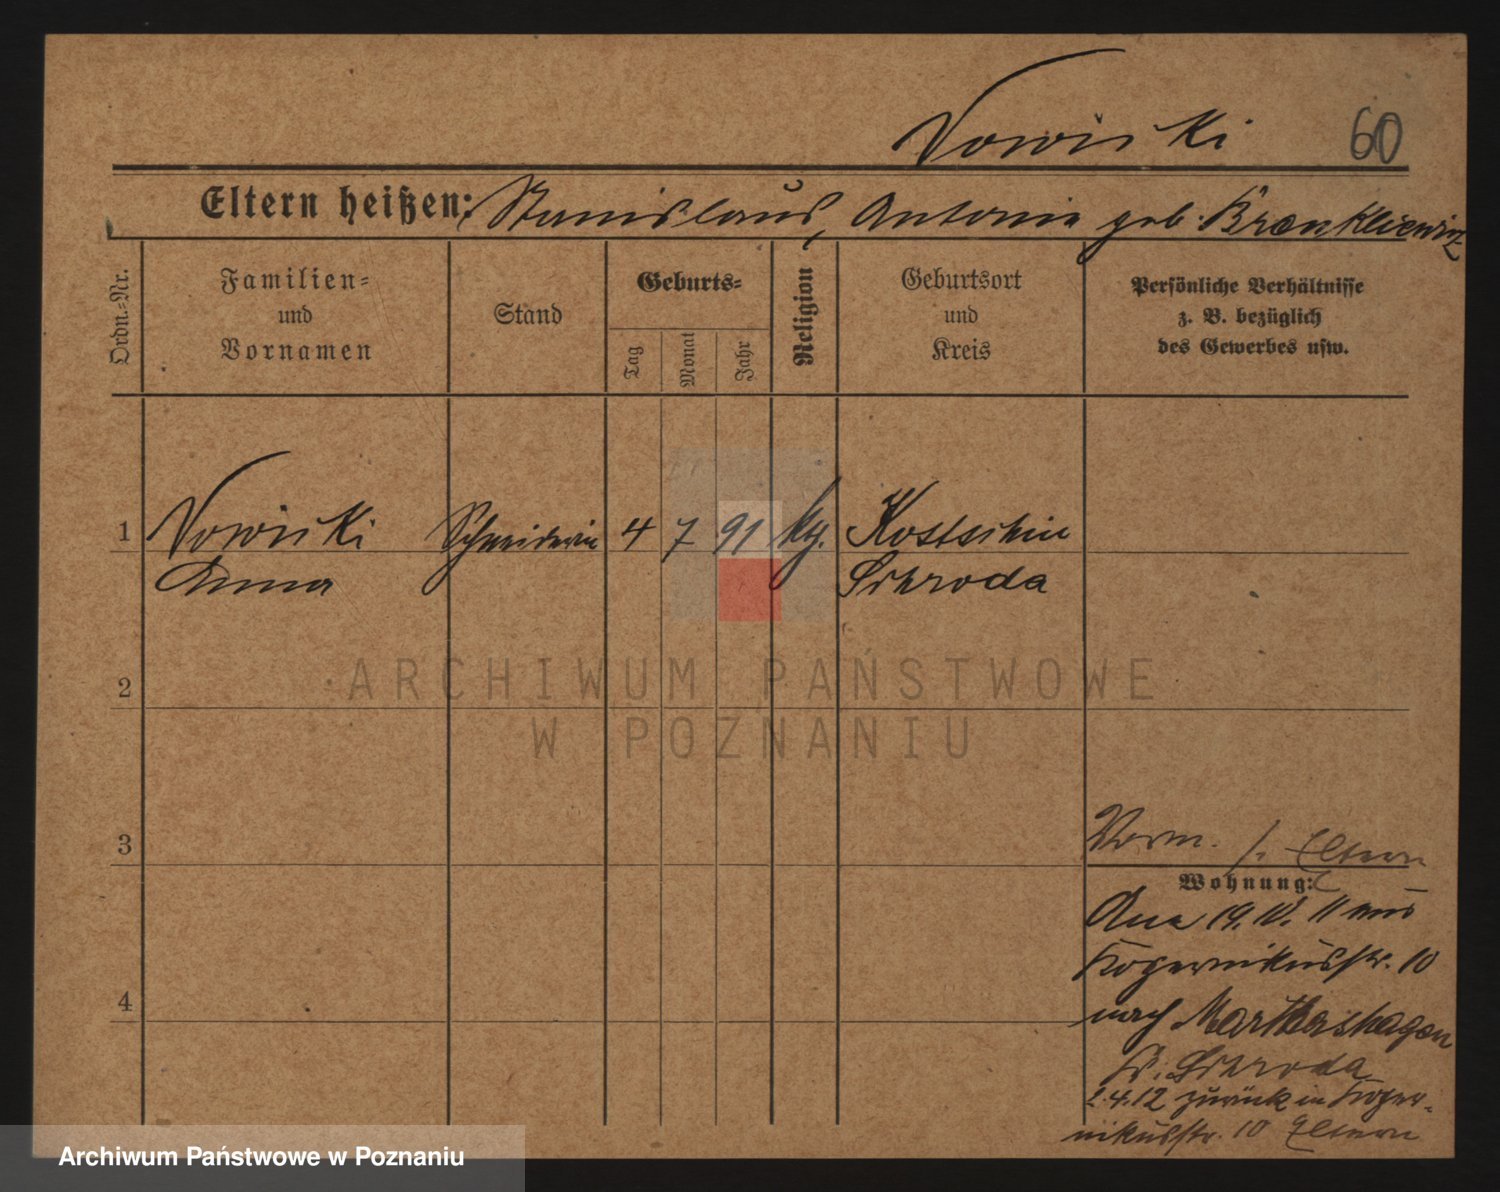 Nowicki 60
Eltern heißen: Stanislaus, Antonie geb. Brœnkliewicz
Ordn.-Nr.
Familien-
und
Vornamen
Stand
Geburts-
Tag
Monat
Jahr
Religion
Geburtsort
und
Kreis
Persönliche Verhältnisse
z. B. bezüglich
des Gewerbes usw.
1 Nowicki Schneiderin 4 7 91 kg. Kostschin
Anna Schroda
2
ARCHIWUM PAŃSTWOWE
W POZNANIU
3
Verm. s. Eltern
Wohnung:
19. 10. 11 aus
Kopernikusstr. 10
4
nach Marthashagen
Kr. Schroda
2.4.12 zurück in Koper-
nikusstr. 10 Eltern
Archiwum Państwowe w Poznaniu